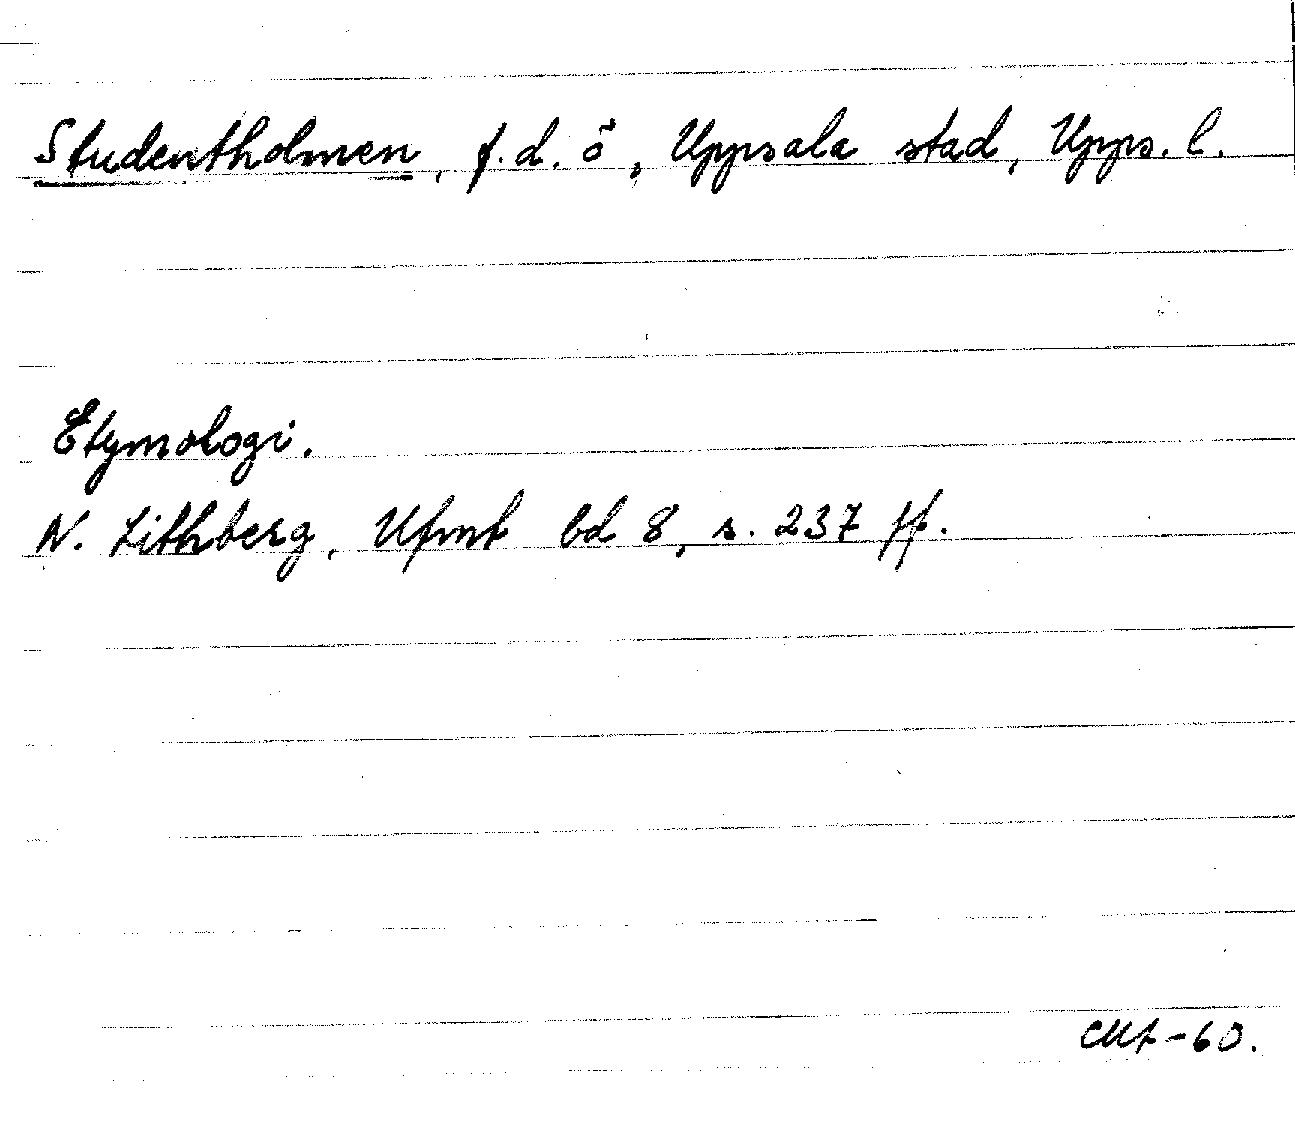 Studentholmen, f.d. ö, Uppsala stad, Upps. l.
Etymologi.
N. Lithberg, Ufmt bd 8, s. 237 ff.
-60.